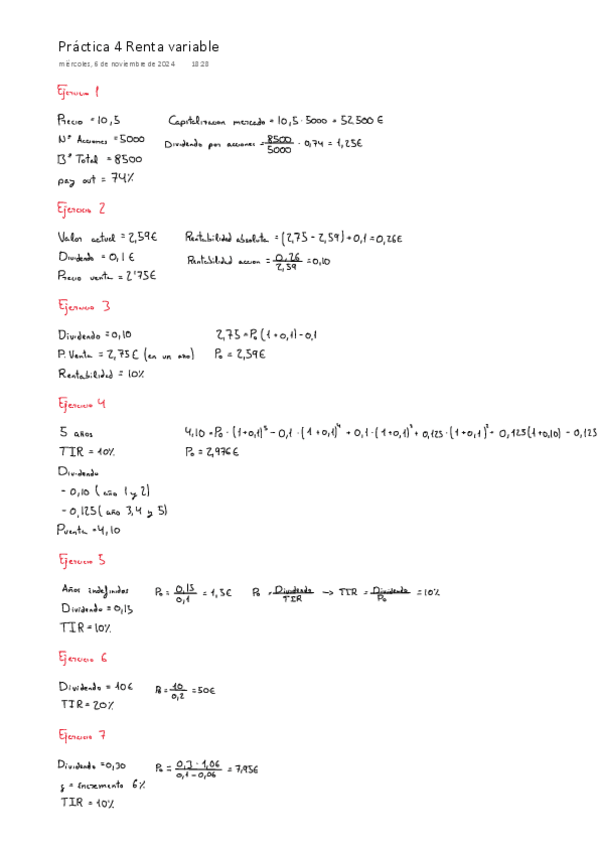 Práctica 4 Renta variable
miércoles, 6 de noviembre de 2024 18:28
Ejercicio 1
Precio = 10,5 Capitalizacion mercado = 10,5 · 5000 = 52.500 €
Nº Acciones = 5000 Dividendo por acciones = 8500/5000 · 0,74 = 1,25€
Bº Total = 8500
pay out = 74%
Ejercicio 2
Valor actual = 2,59€ Rentabilidad absoluta = (2,75 - 2,59) + 0,1 = 0,26€
Dividendo = 0,1 € Rentabilidad accion = 0,26/2,59 = 0,10
Precio venta = 2'75€
Ejercicio 3
Dividendo = 0,10 2,75 = P₀ (1+0,1) - 0,1
P. Venta = 2,75 € (en un año) P₀ = 2,59€
Rentabilidad = 10%
Ejercicio 4
5 años 4,10 = P₀ · (1+0,1)⁵ - 0,1 · (1+0,1)⁴ + 0,1 · (1+0,1)³ + 0,125 · (1+0,1)² - 0,125(1+0,10) - 0,125
TIR = 10% P₀ = 2,976€
Dividendo
- 0,10 (año 1 y 2)
- 0,125 (año 3,4 y 5)
Pventa = 4,10
Ejercicio 5
Años indefinidos P₀ = 0,15/0,1 = 1,5€ P₀ = Dividendo/TIR → TIR = Dividendo/P₀ = 10%
Dividendo = 0,15
TIR = 10%
Ejercicio 6
Dividendo = 10€ P₀ = 10/0,2 = 50€
TIR = 20%
Ejercicio 7
Dividendo = 0,30 P₀ = 0,3 · 1,06/0,1 - 0,06 = 7,95€
g = incremento 6%
TIR = 10%